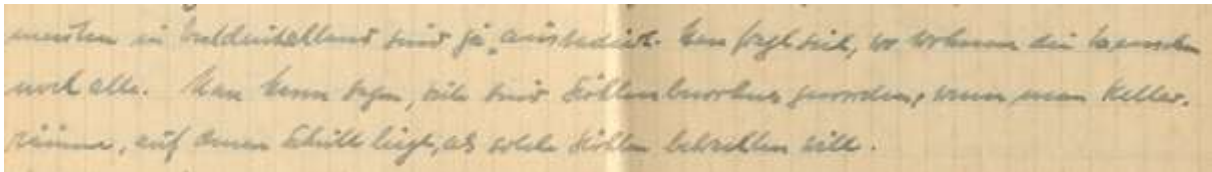 meisten in Süddeutschland sind ja "ausradiert. Man fragt sich, wo wohnen die Menschen
noch alle. Man kann sagen, viele sind Höhlenbewohner geworden, wenn man Keller-
räume, auf denen Schutt liegt, als solche Höhlen betrachten will.